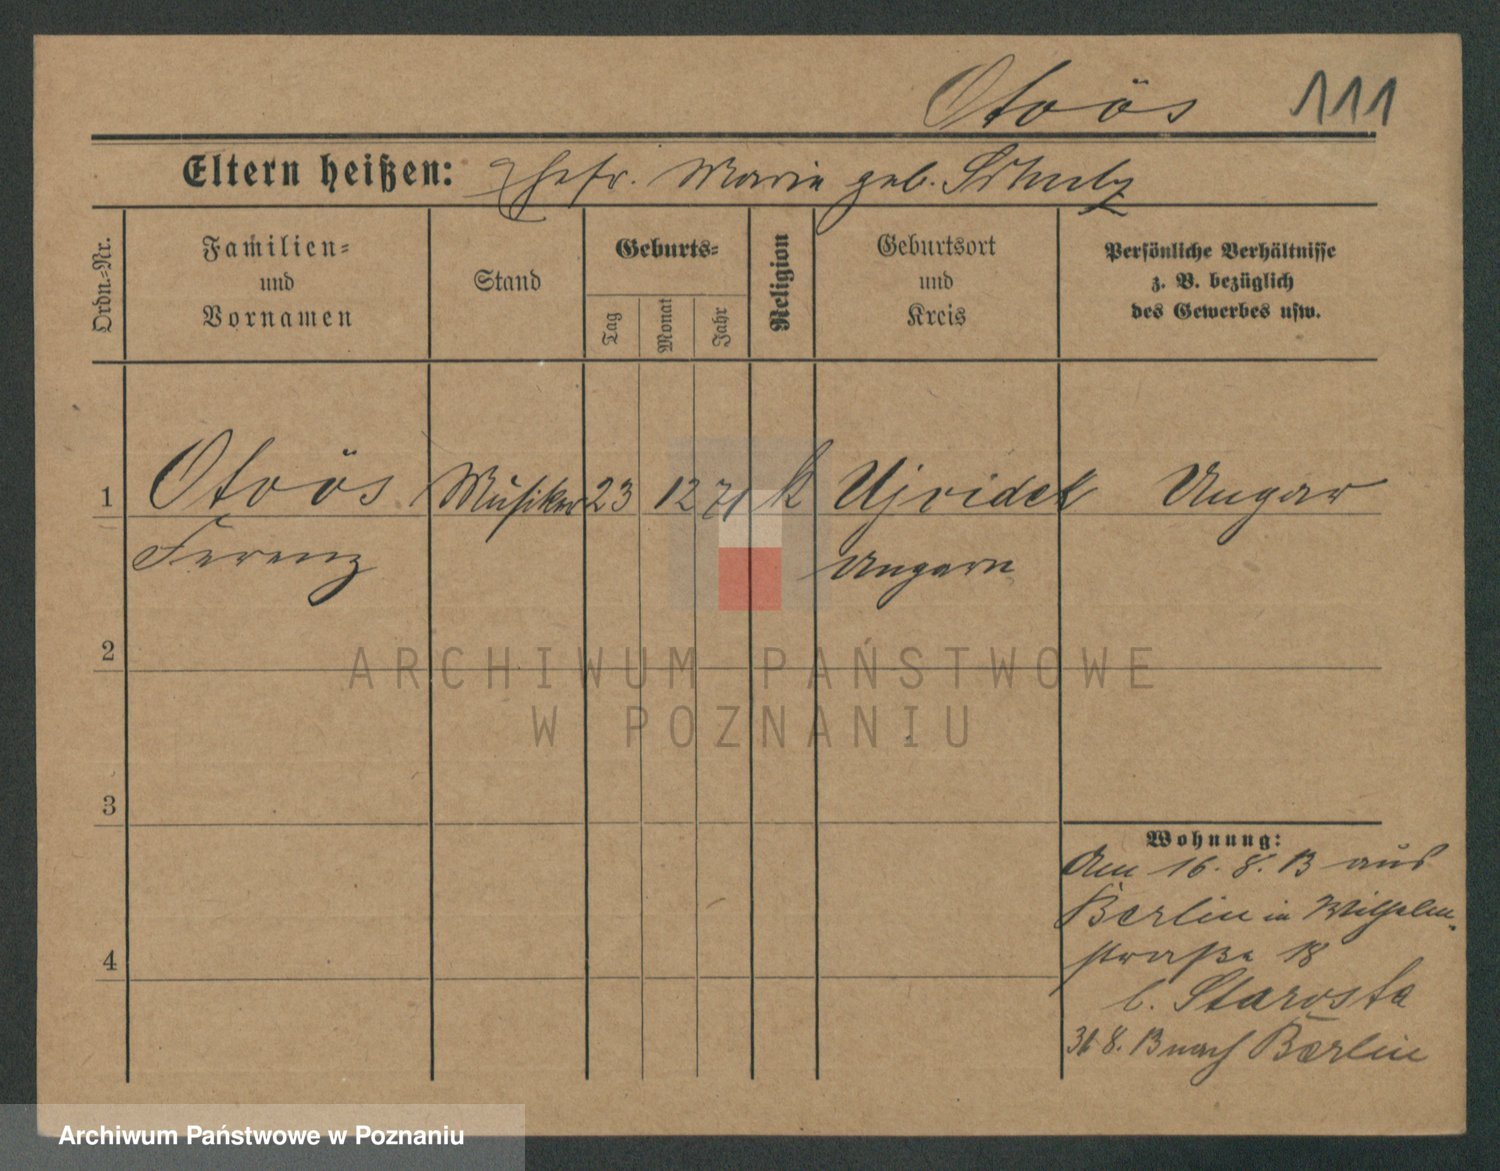 Otoös 111
Eltern heißen: Ehefr. Marie geb. Schulz
Ordn.-Nr.
Familien-
und
Vornamen
Stand
Geburts-
Tag
Monat
Jahr
Religion
Geburtsort
und
Kreis
Persönliche Verhältnisse
z. B. bezüglich
des Gewerbes usw.
1 Otoös Musiker 23 12 71 k Ujvidek Ungar
Ferenz Ungarn
2
3
4
Wohnung:
Am 16. 8. 13 aus
Berlin in Wilhelm-
straße 18
b. Starosta
31. 8. 13 nach Berlin
ARCHIWUM PAŃSTWOWE
W POZNANIU
Archiwum Państwowe w Poznaniu